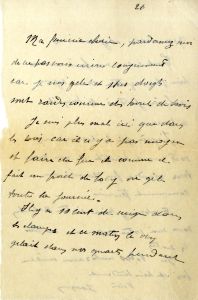 20
Ma femme chérie, pardonnez moi
de ne pas vous écrire longuement
car je suis gelé et mes doigts
sont raides comme des bouts de bois
Je suis plus mal ici que dans
les bois car il n'y a pas moyen
de faire du feu et comme il
fait un froid de loup on gèle
toute la journée.
Il y a 10 cent de neige dans
les champs et ce matin le
gelait dans nos quarts pendant